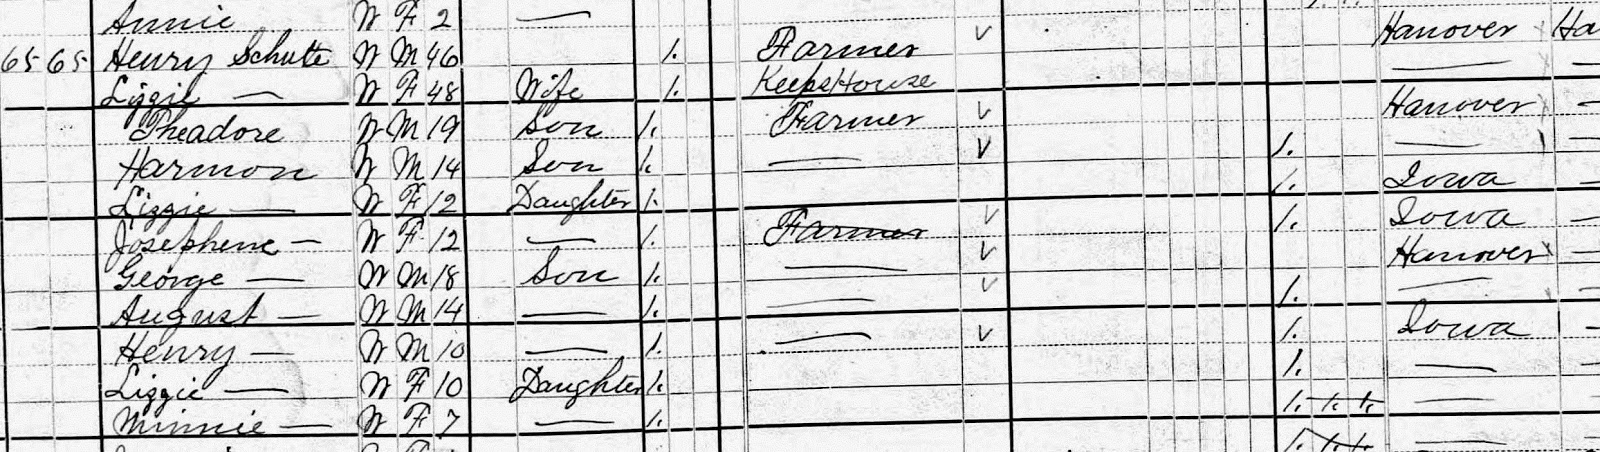 Annie W F 2 —
65 65 Henry Schutte W M 46 1. Farmer Hanover Ha
Lizzie — W F 48 Wife 1. Keeps House —
Theadore W M 19 Son 1. Farmer Hanover —
Harmon W M 14 Son 1. — 1. — —
Lizzie — W F 12 Daughter 1. 1. Iowa —
Josephene — W F 12 — 1. Farmer 1. Iowa —
George — W M 18 Son 1. — Hanover —
August — W M 14 — 1. — 1. — —
Henry — W M 10 — 1. — 1. Iowa —
Lizzie — W F 10 Daughter 1. 1. — —
Minnie — W F 7 — 1. 1. 1. 1. — —
1. 1. 1. —